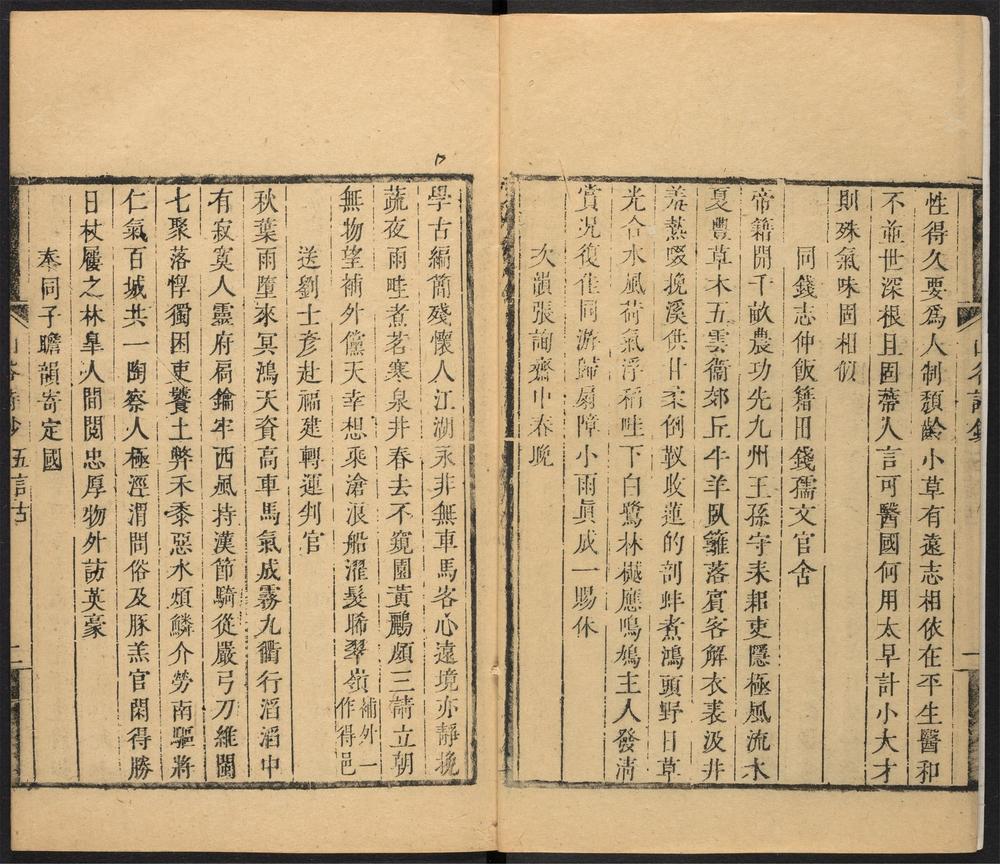 性得久要爲人制頹齡小草有遠志相依在平生醫和
不並世深根且固蔕人言可醫國何用太早計小大才
則殊氣味固相似
同錢志仲飯籍田錢孺文官舍
帝籍開千畝農功先九州王孫守耒耜吏隱極風流水
夏豐草木五雲衞郊丘牛羊臥籬落賓客解衣裘汲井
羞熱啜挽溪供甘柔倒㪺收蓮的剖蚌煮鴻頭野日草
光合水風荷氣浮稻畦下白鷺林樾應鳴鳩主人發清
賞况復佳同游歸扇障小雨眞成一賜休
次韻張詢齋中春晚
學古編簡殘懷人江湖永非無車馬客心遠境亦靜挽
蔬夜雨畦煮茗寒泉井春去不窺園黃鸝頗三請立朝
無物望補外儻天幸想乘滄浪船濯髮晞翠嶺補外一作得邑
送劉士彥赴福建轉運判官
秋葉雨墮來冥鴻天資高車馬氣成霧九衢行滔滔中
有寂寞人靈府扃鑰牢西風持漢節騎從嚴弓刀維閩
七聚落惸獨困吏饕土弊禾黍惡水煩鱗介勞南驅將
仁氣百城共一陶察人極涇渭問俗及豚羔官閑得勝
日杖屨之林皐人間閱忠厚物外訪英豪
奉同子瞻韻寄定國
五言古
二